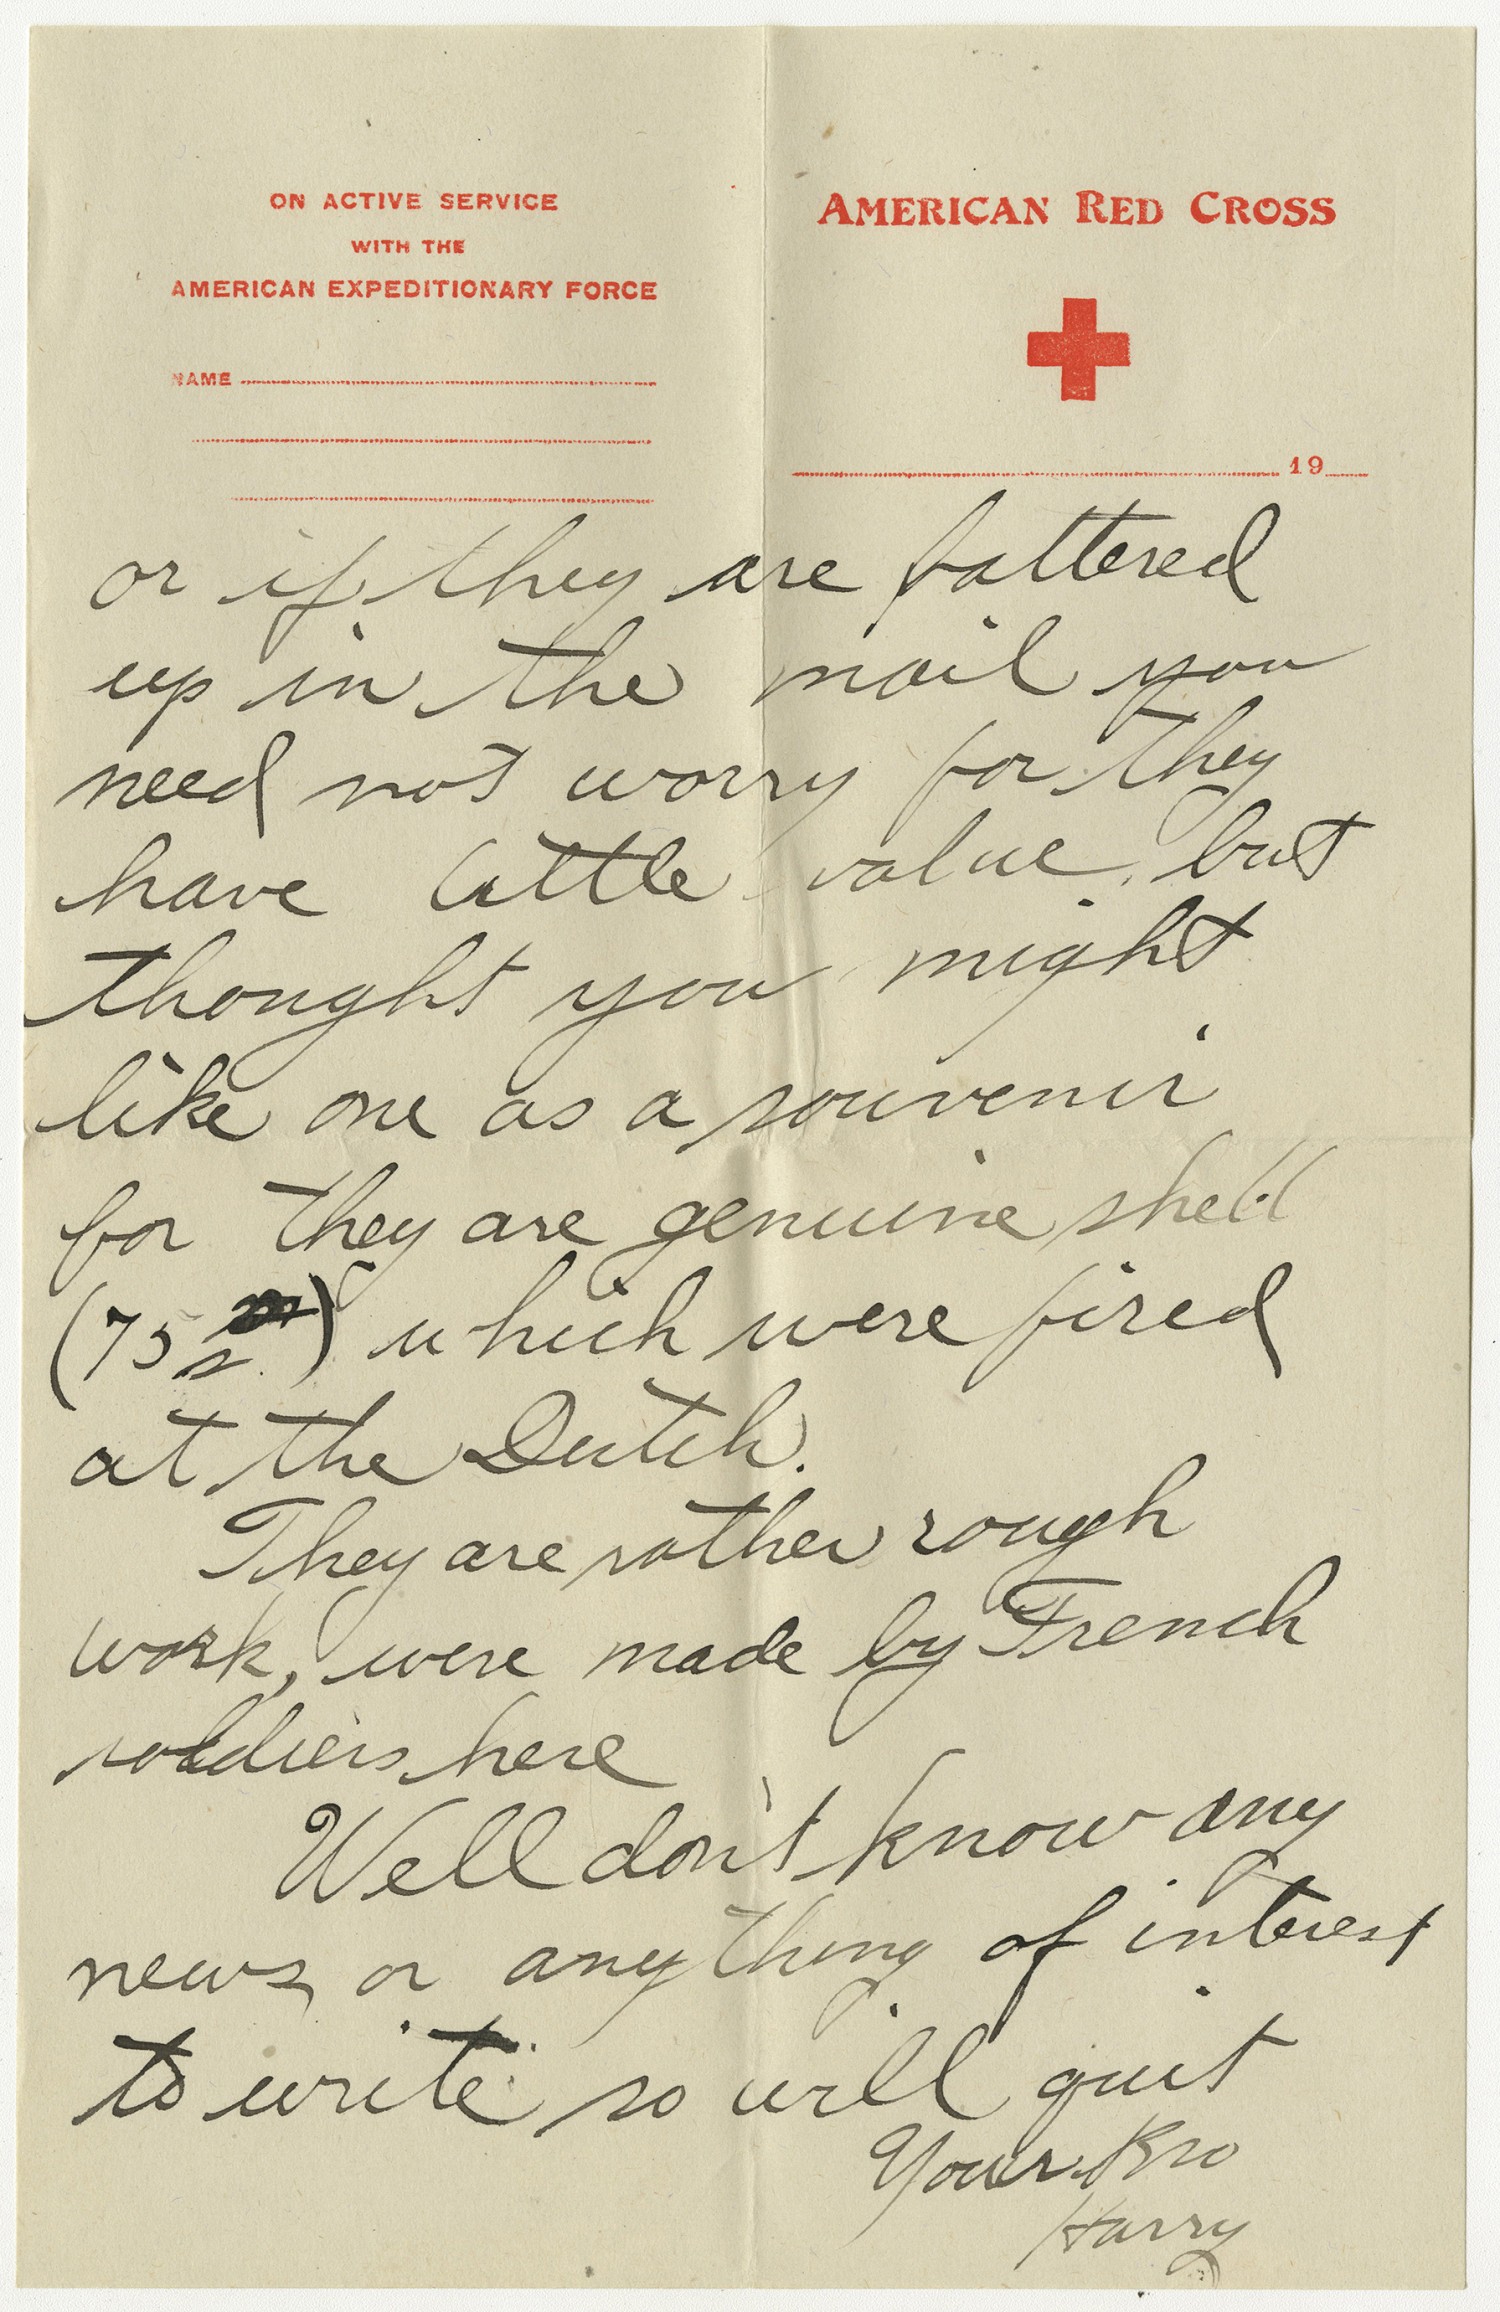 ON ACTIVE SERVICE
WITH THE
AMERICAN EXPEDITIONARY FORCE
NAME
AMERICAN RED CROSS
19
or if they are battered
up in the mail you
need not worry for they
have little value, but
thought you might
like one as a souvenir
for they are genuine shell
(75 s.) which were fired
at the Dutch.
They are rather rough
work, were made by French
soldiers here
Well don't know any
news or anything of interest
to write so will quit
Your Bro
Harry